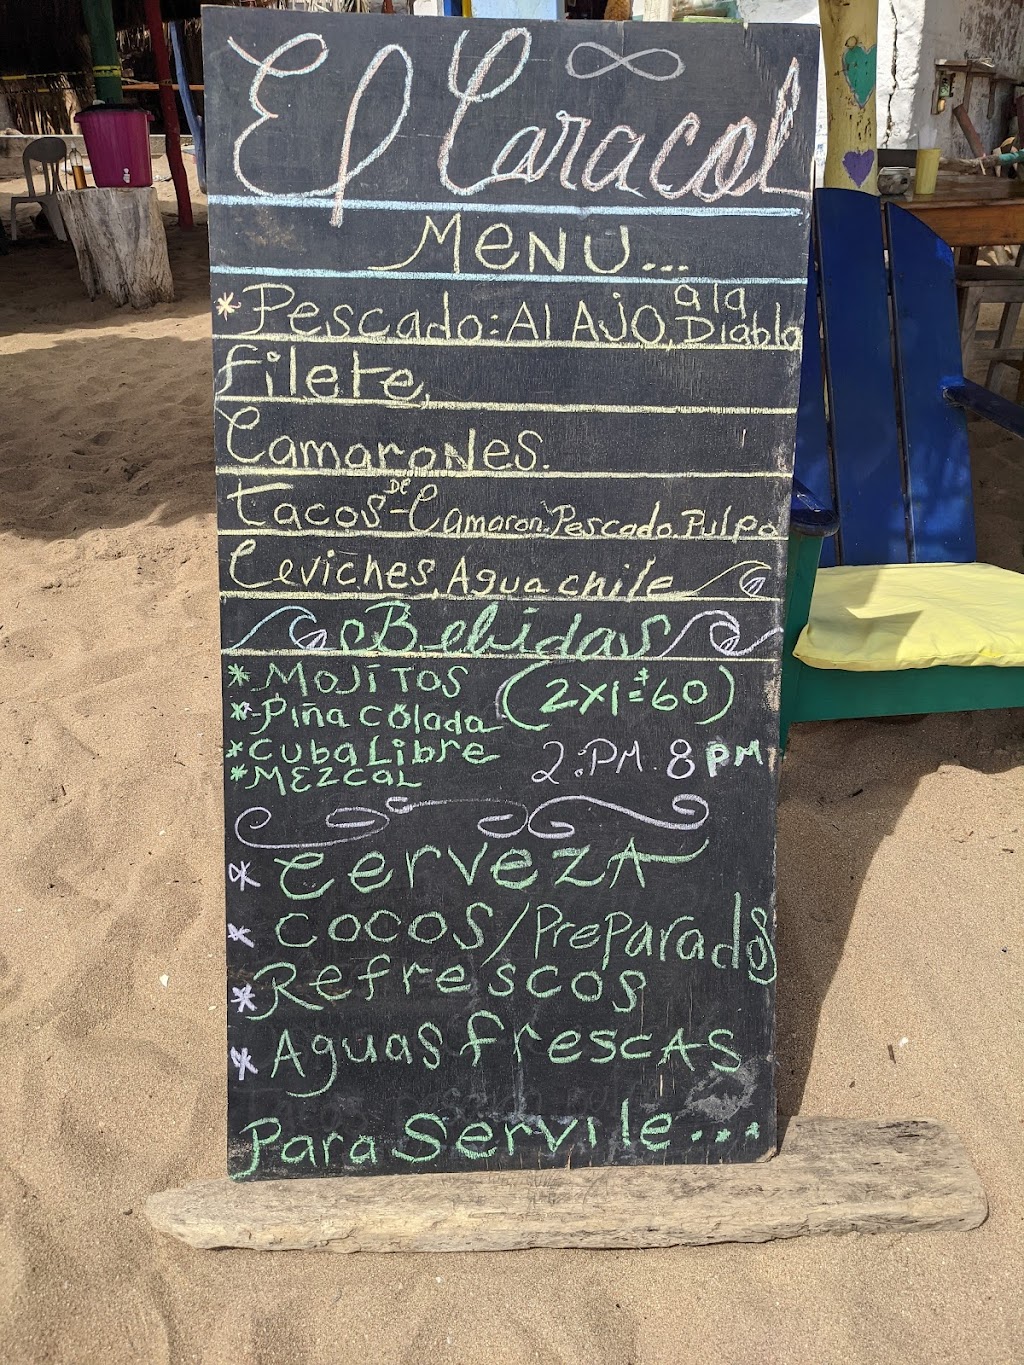 El Caracol
MENU...
*Pescado: Al AJO, a la Diabla
filete,
CamaroNes.
Tacos DE - Camaron. Pescado. Pulpo
Ceviches, Agua chile
Bebidas
*MOJÍTOS (2x1=$60)
*-Piña Colada
*CubaLibre 2:PM. 8 PM
*MEZCAL
* CervezA
* COCOS/PreParados
* Refrescos
* Aguas frescAs
Para Servile...